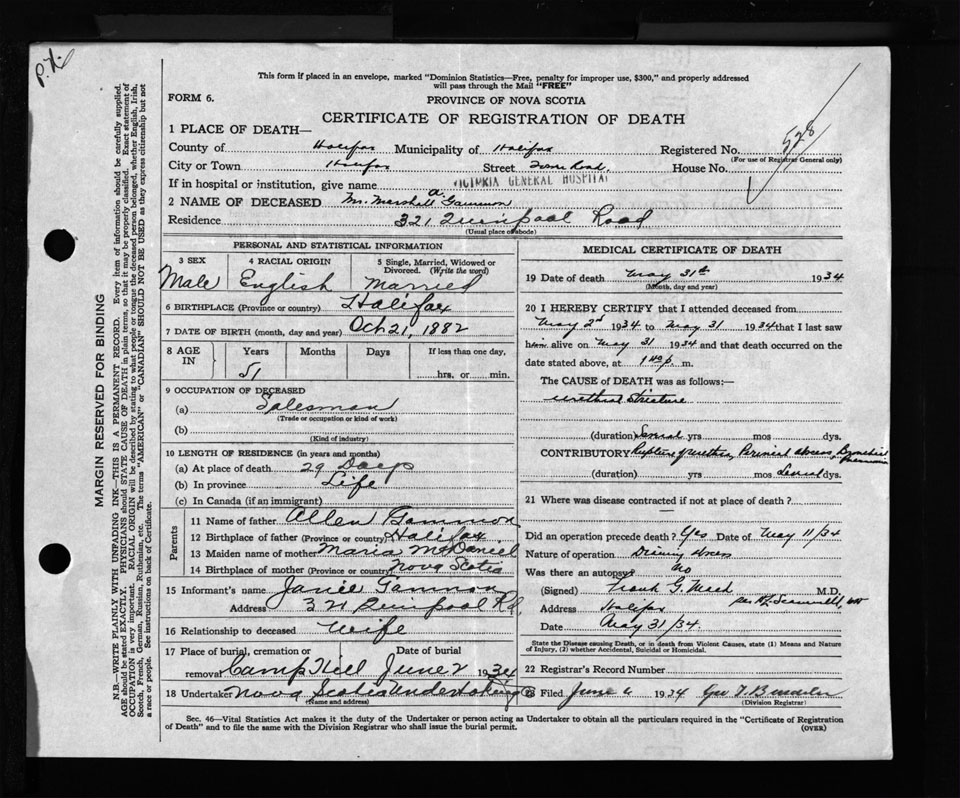 P.X.
This form if placed in an envelope, marked "Dominion Statistics—Free, penalty for improper use, $300," and properly addressed
will pass through the Mail "FREE"
FORM 6.
PROVINCE OF NOVA SCOTIA
CERTIFICATE OF REGISTRATION OF DEATH
528
1 PLACE OF DEATH—
County of Halifax Municipality of Halifax Registered No.
(For use of Registrar General only)
City or Town Halifax Street Road House No.
If in hospital or institution, give name VICTORIA GENERAL HOSPITAL
2 NAME OF DECEASED Mr. Marshall A. Gammon
Residence 321 Quinpool Road
(Usual place of abode)
PERSONAL AND STATISTICAL INFORMATION
3 SEX Male
4 RACIAL ORIGIN English
5 Single, Married, Widowed or
Divorced. (Write the word)
Married
6 BIRTHPLACE (Province or country) Halifax
7 DATE OF BIRTH (month, day and year) Oct 21, 1882
8 AGE IN Years Months Days If less than one day,
51 hrs. or min.
9 OCCUPATION OF DECEASED
(a) Salesman
(Trade or occupation or kind of work)
(b)
(Kind of industry)
10 LENGTH OF RESIDENCE (in years and months)
(a) At place of death 29 Days
(b) In province Life
(c) In Canada (if an immigrant)
Parents
11 Name of father Allen Gammon
12 Birthplace of father (Province or country) Halifax
13 Maiden name of mother Maria McDaniel
14 Birthplace of mother (Province or country) Nova Scotia
15 Informant's name Janie Gammon
Address 321 Quinpool Rd.
16 Relationship to deceased Wife
17 Place of burial, cremation or Date of burial
removal Camp Hill June 2 1934
18 Undertaker Nova Scotia Undertaking
(Name and address)
MEDICAL CERTIFICATE OF DEATH
19 Date of death May 31st 1934
(Month, day and year)
20 I HEREBY CERTIFY that I attended deceased from
May 2nd 1934 to May 31 1934 that I last saw
him alive on May 31 1934 and that death occurred on the
date stated above, at 1 40 p. m.
The CAUSE of DEATH was as follows:—
Urethral Stricture
(duration) Several yrs mos dys.
CONTRIBUTORY Rupture of urethra, Perineal Abscess, Bronchial Pneumonia
(duration) yrs mos Several dys.
21 Where was disease contracted if not at place of death?
Did an operation precede death? Yes Date of May 11/34
Nature of operation Draining Abscess
Was there an autopsy? No
(Signed) Frank G. Mack M.D.
Address Halifax
Date May 31/34.
State the Disease causing Death, or in death from Violent Causes, state (1) Means and Nature
of Injury, (2) whether Accidental, Suicidal or Homicidal.
22 Registrar's Record Number
23 Filed June 6 1934
(Division Registrar)
Sec. 46—Vital Statistics Act makes it the duty of the Undertaker or person acting as Undertaker to obtain all the particulars required in the "Certificate of Registration
of Death" and to file the same with the Division Registrar who shall issue the burial permit. (OVER)
MARGIN RESERVED FOR BINDING
N.B.—WRITE PLAINLY WITH UNFADING INK—THIS IS A PERMANENT RECORD. Every item of information should be carefully supplied.
AGE should be stated EXACTLY. PHYSICIANS should STATE CAUSE OF DEATH in plain terms, so that it may be properly classified. Exact statement of
OCCUPATION is very important. RACIAL ORIGIN will be described by stating to what people or tongue the deceased person belonged, whether English, Irish,
Scotch, French, German, Russian, Ruthenian, etc. The terms "AMERICAN" or "CANADIAN" SHOULD NOT BE USED as they express citizenship but not
a race or people. See instructions on back of Certificate.